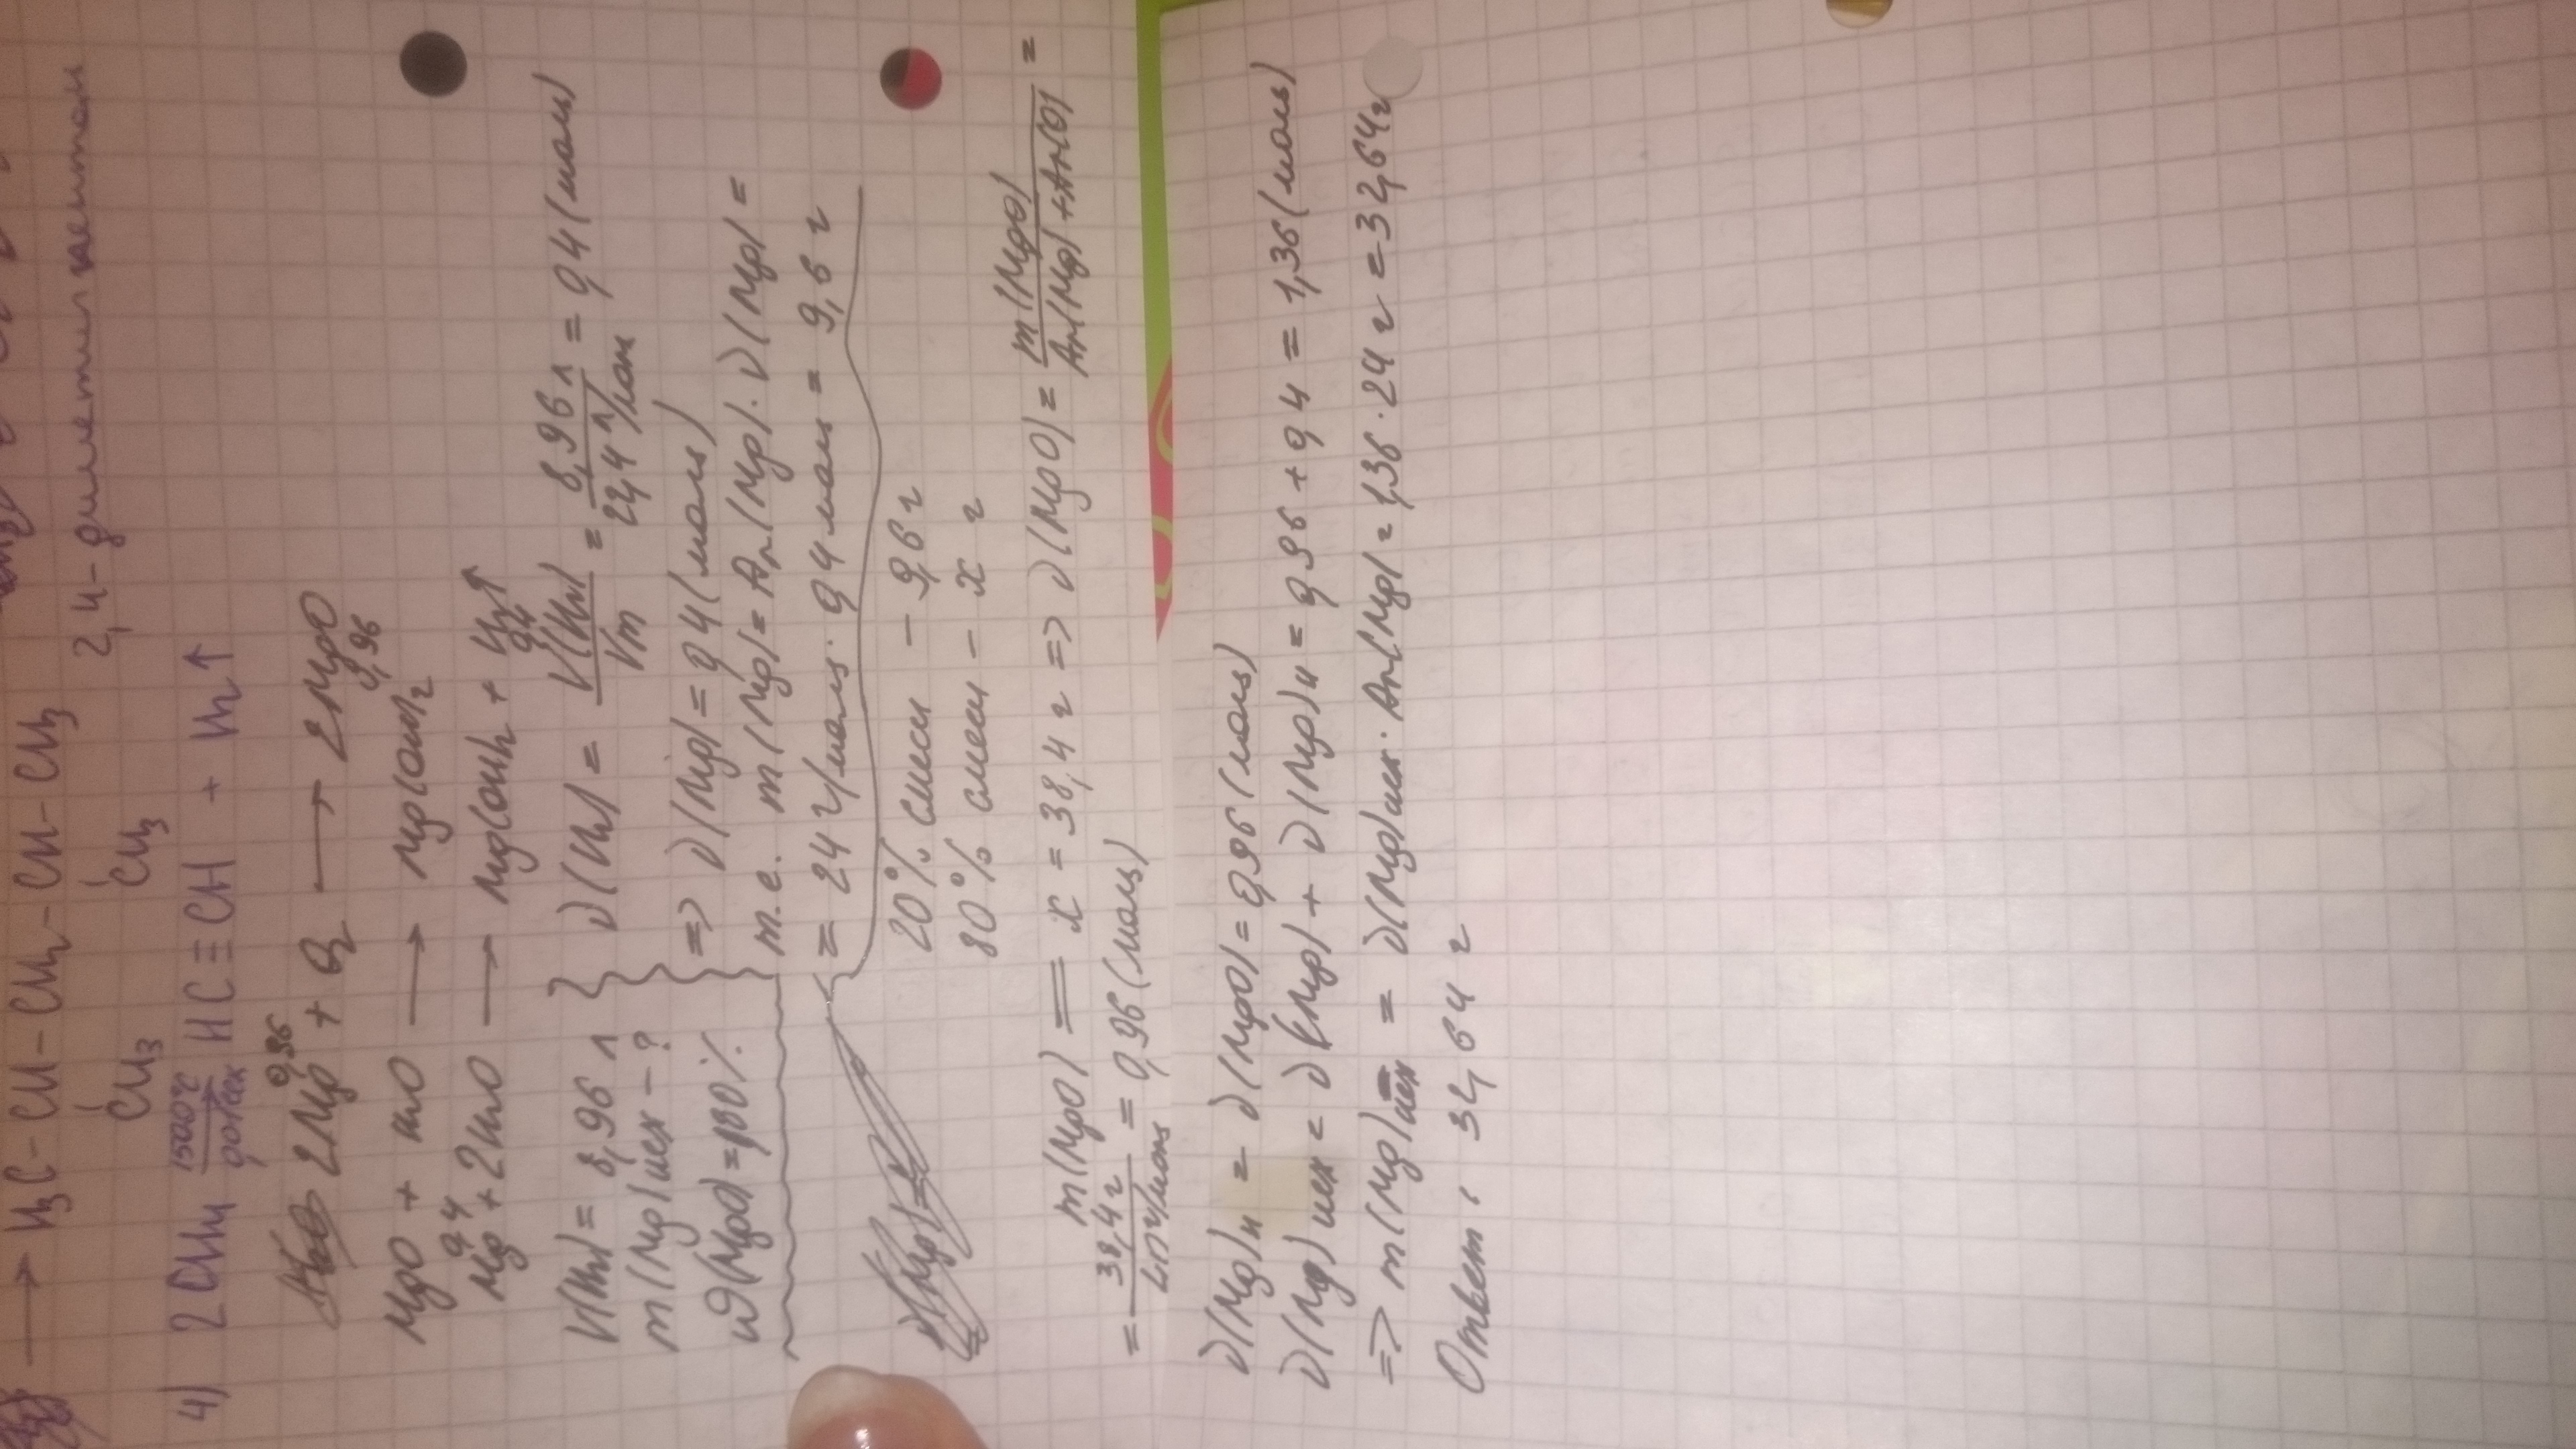 → H₃C-CH-CH₂-CH-CH₃
CH₃ CH₃ 2,4-диметилпентан
4) 2CH₄ 1500°C HC≡CH + H₂↑
2Mg + O₂ → 2MgO
0,96 0,96
MgO + H₂O → Mg(OH)₂
Mg + 2H₂O → Mg(OH)₂ + H₂↑
0,4 0,4
V(H₂) = 8,96 л } ν(H₂) = V(H₂)/Vm = 8,96 л / 22,4 л/моль = 0,4 (моль)
m(Mg)исх - ? } => ν(Mg) = 0,4 (моль)
ω(MgO) = 80% т.е. m(Mg) = Ar(Mg) · ν(Mg) =
= 24 г/моль · 0,4 моль = 9,6 г
ν(Mg) =
20% смеси - 9,6 г
80% смеси - x г
m(MgO) = x = 38,4 г => ν(MgO) = m(MgO) / Ar(Mg)+Ar(O) =
= 38,4 г / 40 г/моль = 0,96 (моль)
ν(Mg)н = ν(MgO) = 0,96 (моль)
ν(Mg)исх = ν(Mg) + ν(Mg)н = 0,96 + 0,4 = 1,36 (моль)
=> m(Mg)исх = ν(Mg)исх · Ar(Mg) = 1,36 · 24 г = 32,64 г
Ответ: 32,64 г